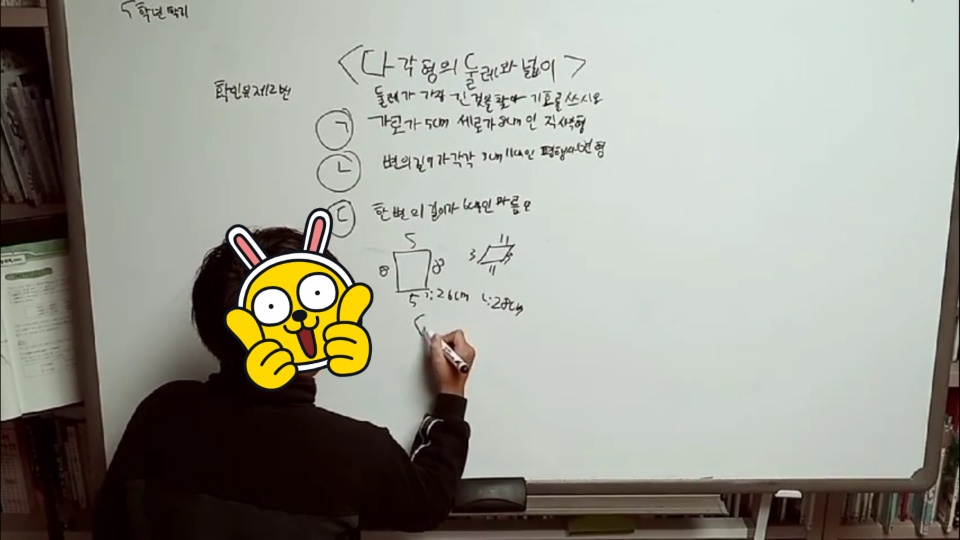 5학년 수학
<다각형의 둘레와 넓이>
확인문제 12번
둘레가 가장 긴 것을 찾아 기호를 쓰시오
ㄱ 가로가 5cm 세로가 8cm인 직사각형
ㄴ 변의 길이가 각각 3cm 11cm인 평행사변형
ㄷ 한 변의 길이가 6cm인 마름모
5 11
8 8 3
11
5 ㄱ:26cm ㄴ:28cm